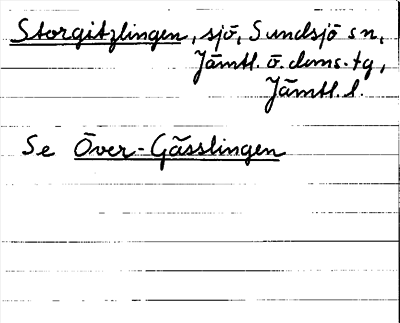 Storgitzlingen, sjö, Sundsjö sn,
Jämtl. ö. doms. tg,
Jämtl. l.
Se Över-Gässlingen